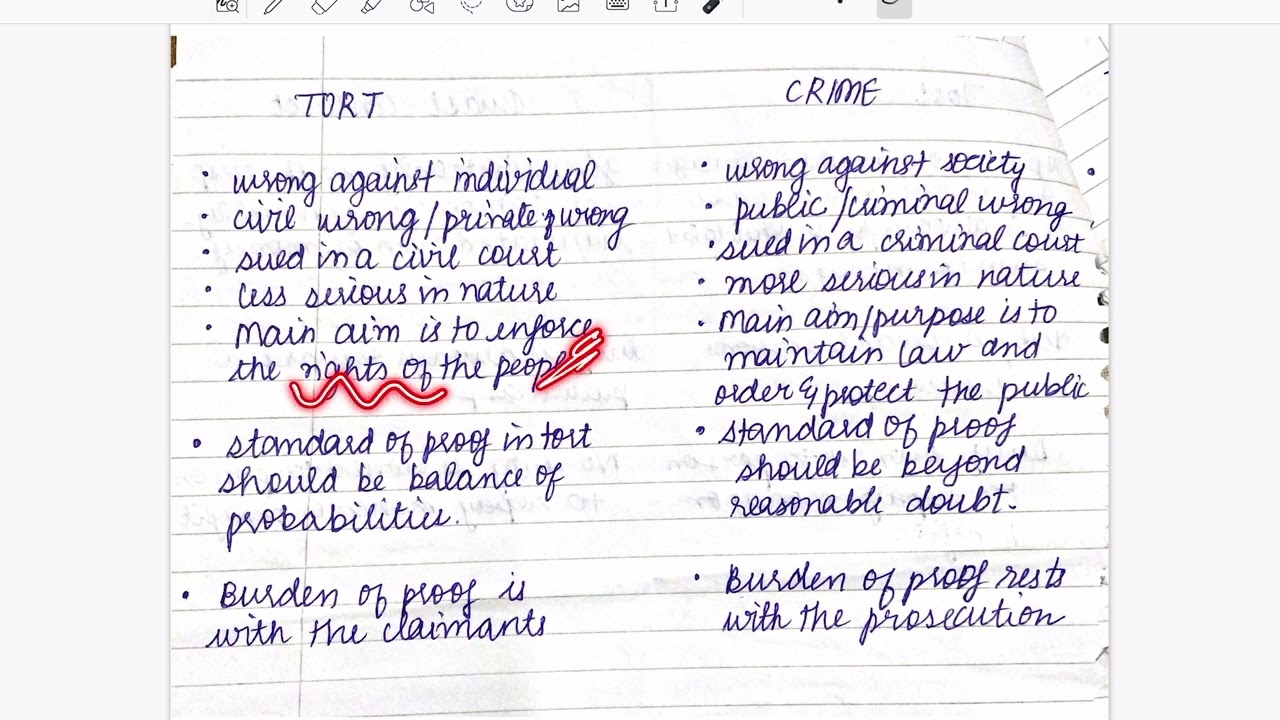 TORT
• wrong against individual
• civil wrong/private wrong
• sued in a civil court
• less serious in nature
• Main aim is to enforce
the rights of the people.
• standard of proof in tort
should be balance of
probabilities.
• Burden of proof is
with the claimants
CRIME
• wrong against society
• public/criminal wrong
• sued in a criminal court
• more serious in nature
• Main aim/purpose is to
maintain law and
order & protect the public
• standard of proof
should be beyond
reasonable doubt.
• Burden of proof rests
with the prosecution